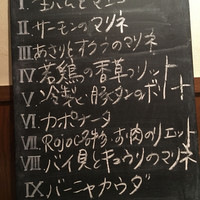 I. 生ハムと
II. サーモンのマリネ
III. あさりと のマリネ
IV. 若鶏の香草フリット
V. 冷製 豚タンのボリート
VI. カポナータ
VII. Rojoc お肉のリエット
VIII. バイ貝とキュウリのマリネ
IX. バーニャカウダ